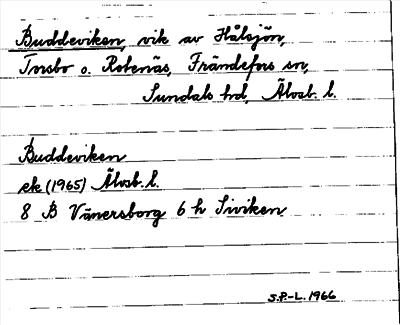 Buddeviken, vik av Hålsjön,
Torsbo o. Rotenäs, Frändefors sn,
Sundals hd, Älvsb. l.
Buddeviken
ek (1965) Älvsb. l.
8 B Vänersborg 6 h Siviken
S.P.-L. 1966